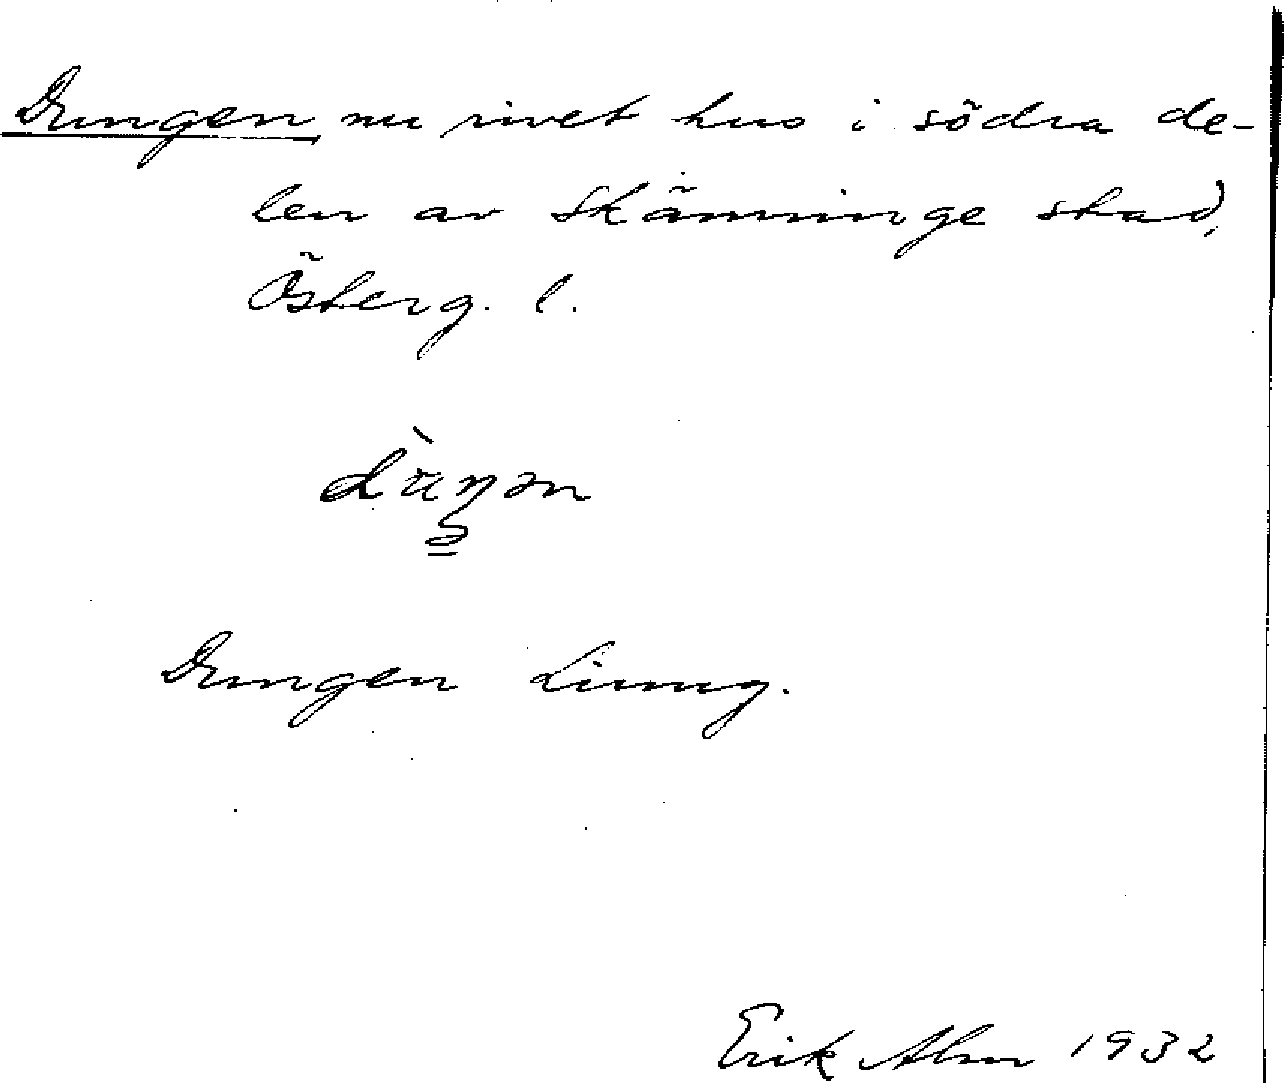 Dungen nu rivet hus i södra de-
len av Skänninge stad,
Österg. l.
Dungen
Erik Alm 1932